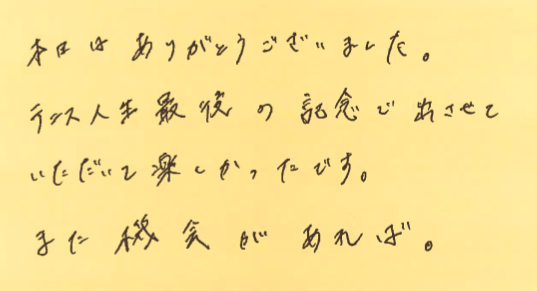 本日はありがとうございました。
テンス人生最後の記念で出させて
いただいて楽しかったです。
また機会があれば。